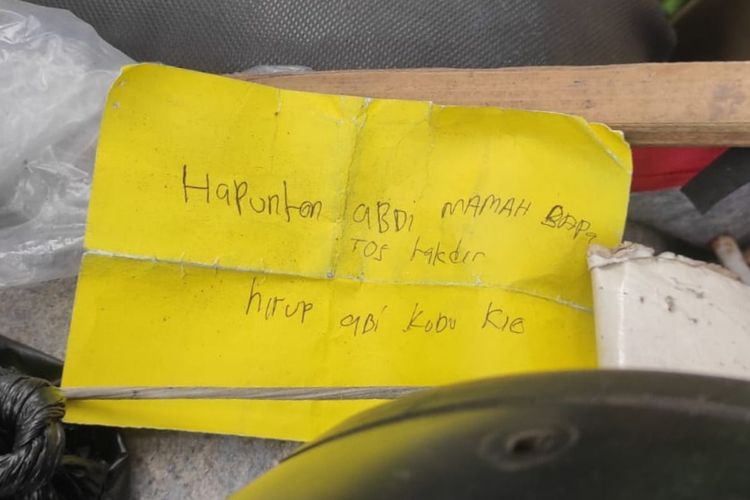 Hapunten aBDi MAMAH BAPa
TOS takdir
hirup aBi kudu kie